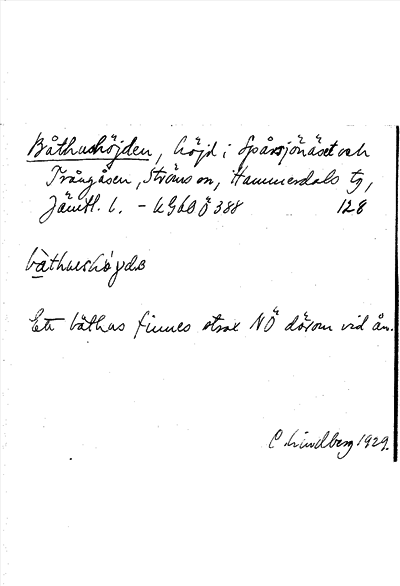 Båthushöjden, höjd i Spårsjönäset och
Trångåsen, Ströms sn, Hammerdals tg,
Jämtl. l. - KGbBÖ 388 128
båthushöydɞ
Ett båthus finnes strax NÖ därom vid ån.
C Lindberg 1929.